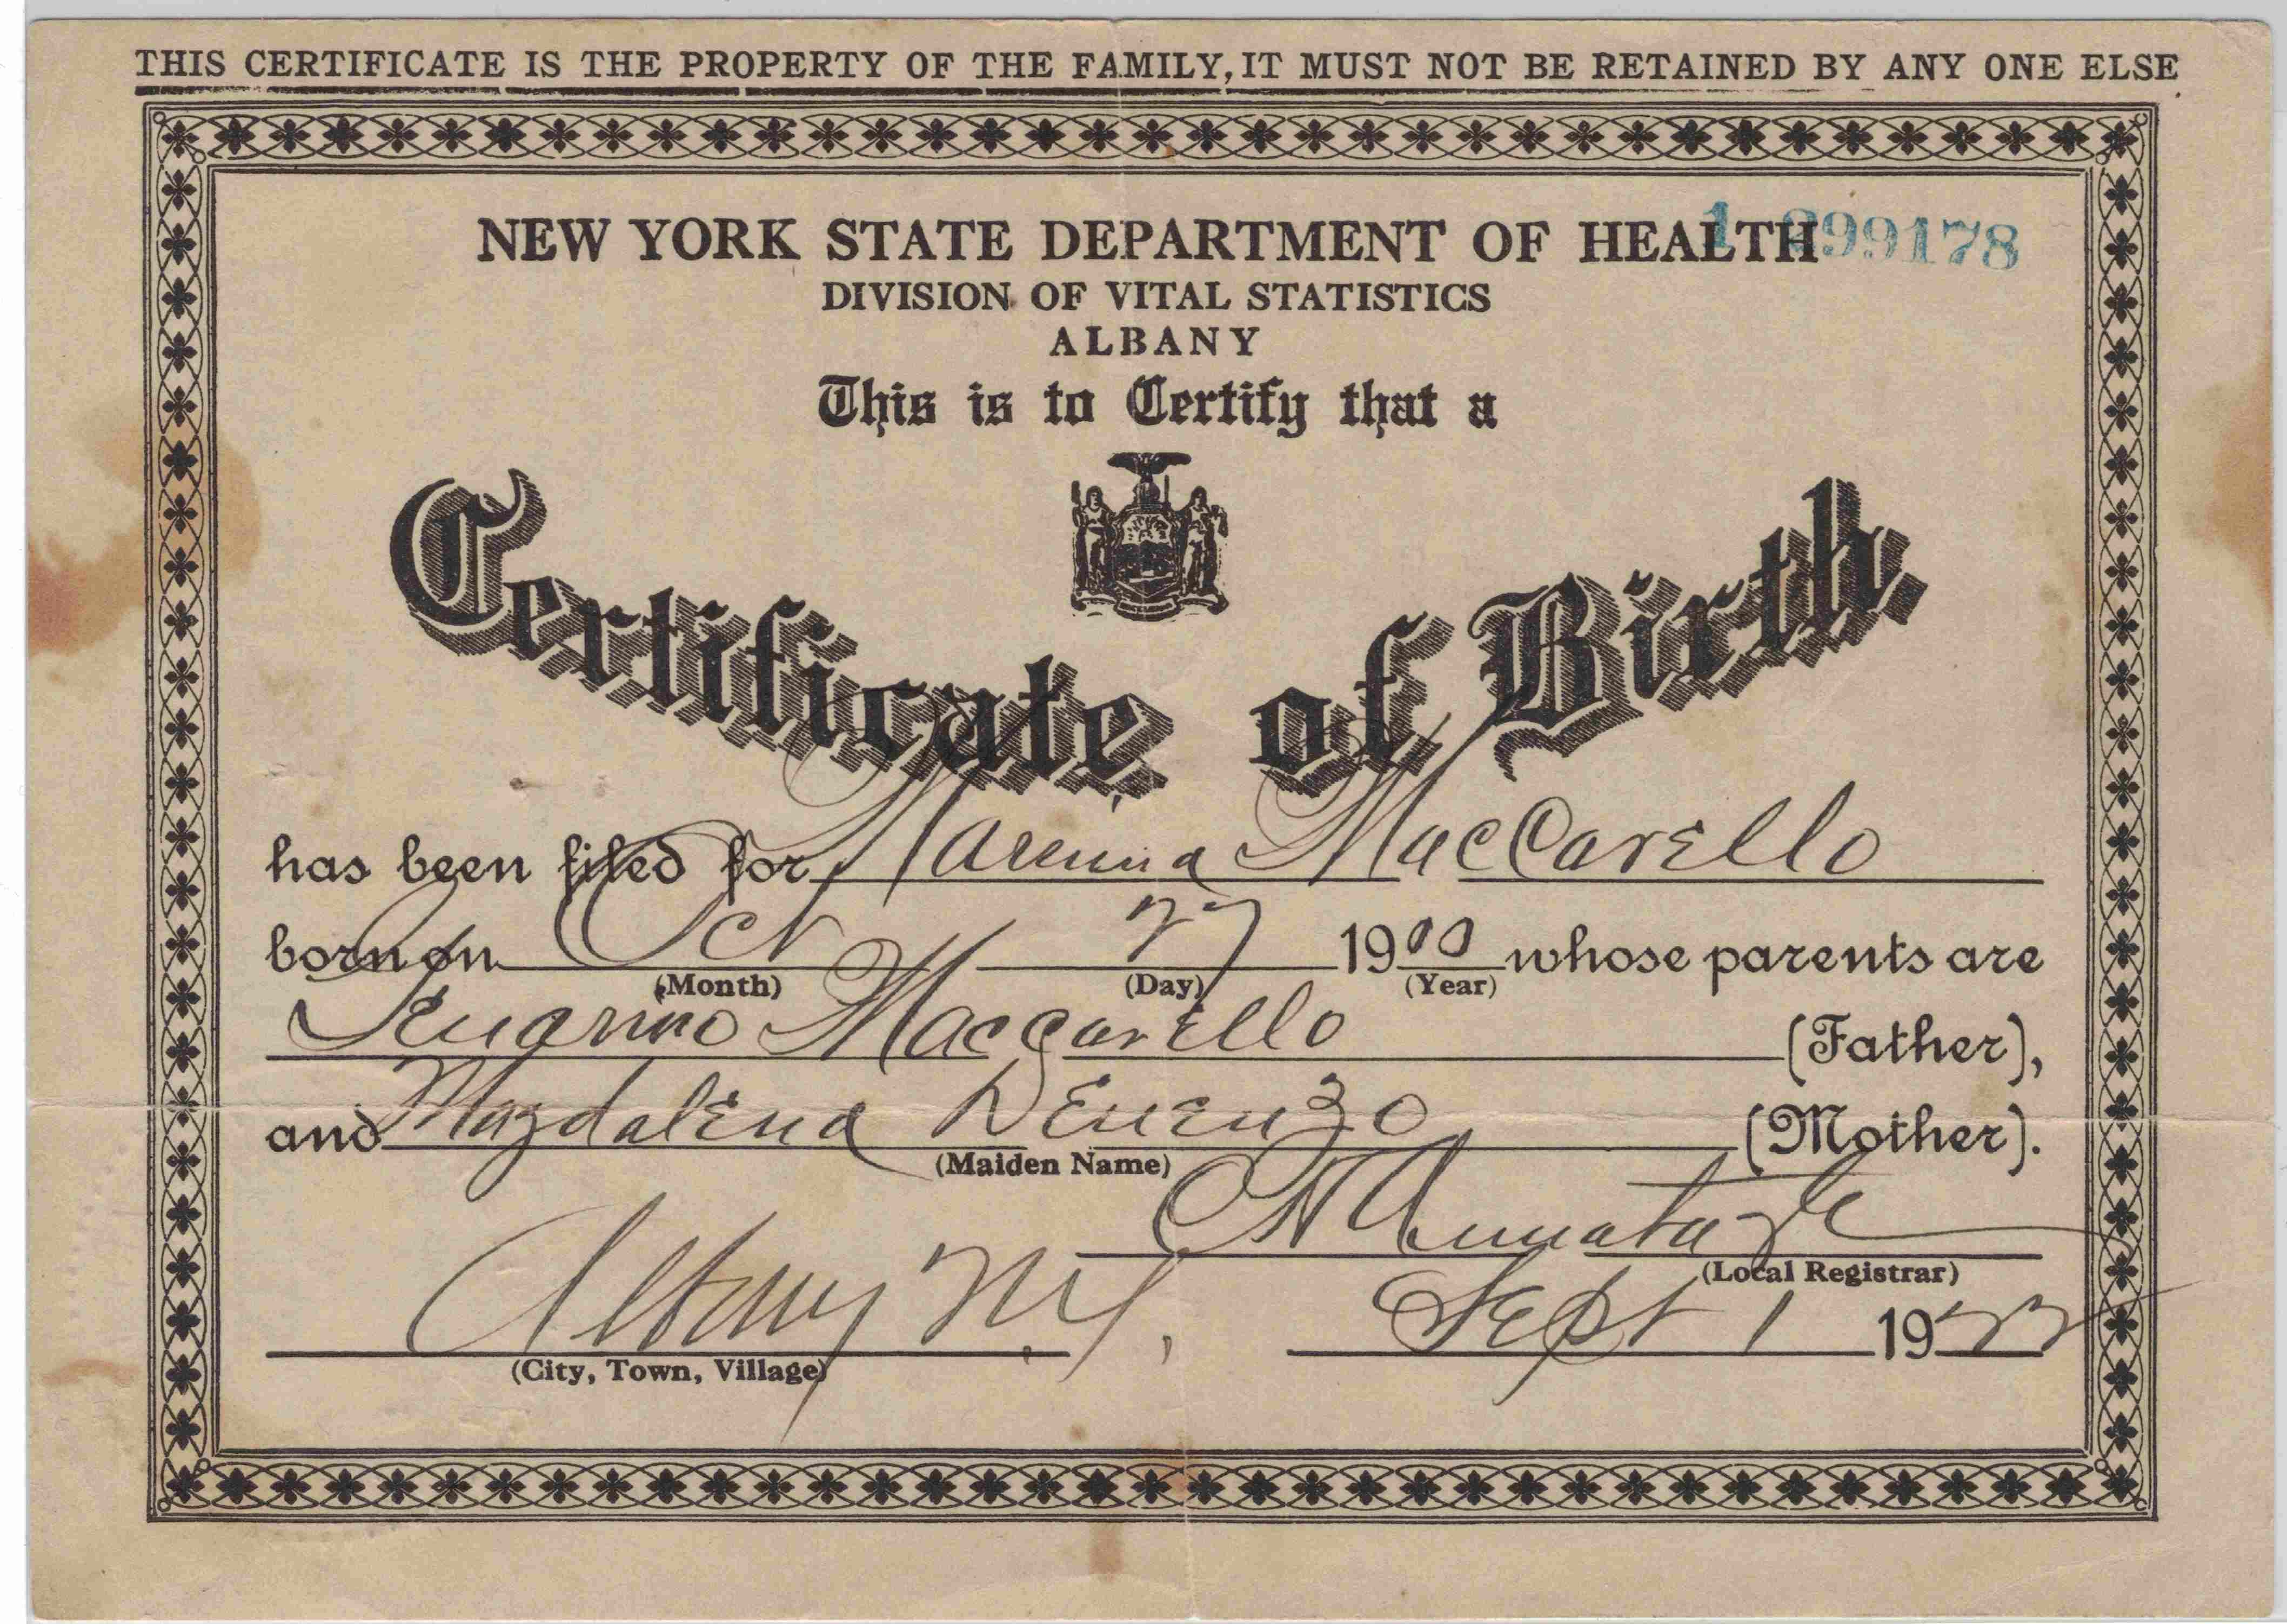 THIS CERTIFICATE IS THE PROPERTY OF THE FAMILY, IT MUST NOT BE RETAINED BY ANY ONE ELSE
NEW YORK STATE DEPARTMENT OF HEALTH 1 299178
DIVISION OF VITAL STATISTICS
ALBANY
This is to Certify that a
Certificate of Birth
has been filed for MacCarello
born on Oct 27 1900 whose parents are
(Month) (Day) (Year)
Maccarello (Father),
and Magdalena (Mother).
(Maiden Name)
(Local Registrar)
Albany N.Y. Sept 1 1922
(City, Town, Village)